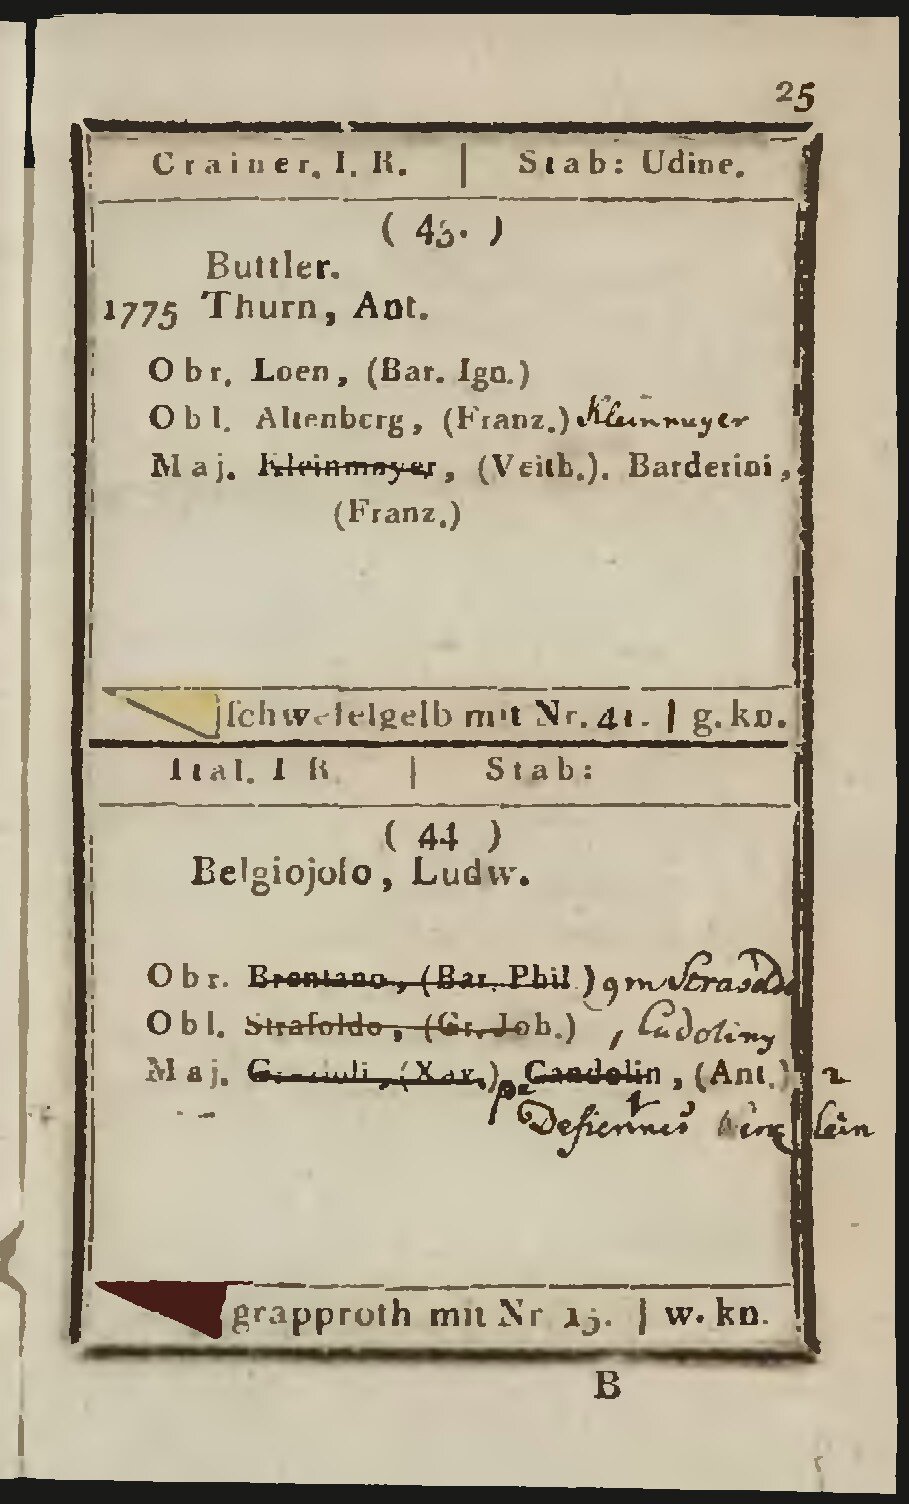 25
Crainer. I. R. | Stab: Udine.
( 43. )
Buttler.
1775 Thurn, Ant.
Obr. Loen, (Bar. Ign.)
Obl. Altenberg, (Franz.) Kleinmayer
Maj. Kleinmayer, (Veith.). Barderini,
(Franz.)
ſchwefelgelb mit Nr. 41. | g. kn.
Ital. I R. | Stab:
( 44 )
Belgiojoſo, Ludw.
Obr. Brentano, (Bar. Phil) gm Strasoldo
Obl. Straſoldo, (Gr. Joh.)
Maj. (Xav.), Gandolin, (Ant.)
grapproth mit Nr 13. | w. kn.
B